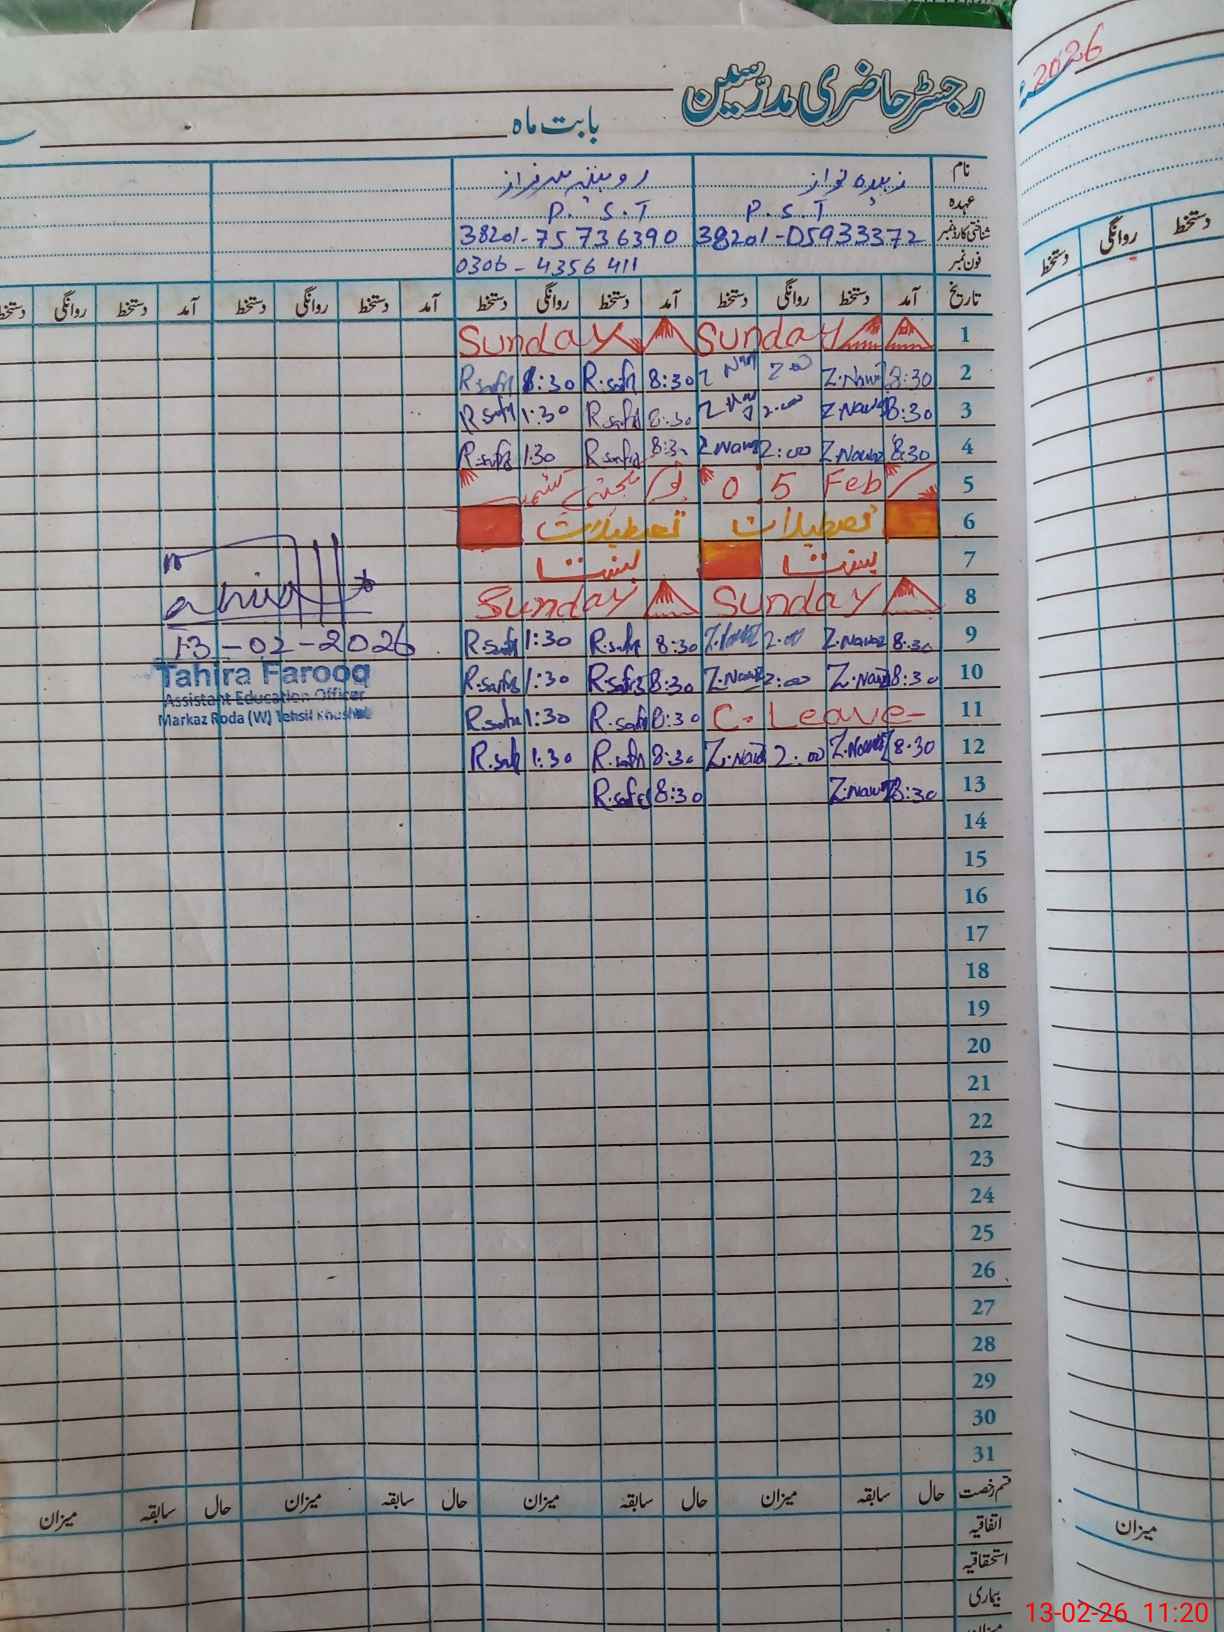 2026
رجسٹر حاضری مدرسین
بابت ماہ
نام زبیدہ نواز روبینہ سرفراز
عہدہ P.S.T P.S.T
شناختی کارڈ نمبر 38201-05933372 38201-75736390
فون نمبر 0306-4356411
تاریخ آمد دستخط روانگی دستخط آمد دستخط روانگی دستخط آمد دستخط روانگی دستخط آمد دستخط روانگی دستخط
دستخط روانگی دستخط
1 Sunday Sunday
2 8:30 Z.Nawaz 8:30 R.safr 8:30
3 8:30 Z.Nawaz 2:00 8:30 R.safr 1:30
4 8:30 Z.Nawaz 2:00 8:30 R.safr 1:30
5 05 Feb یوم یکجہتی کشمیر
6 تعطیلات تعطیلات
7 بسنت بسنت
8 Sunday Sunday
9 8:30 Z.Nawaz 2:00 8:30 R.safr 1:30
10 8:30 Z.Nawaz 2:00 8:30 R.safr 1:30
11 C-Leave- 8:30 R.safr 1:30
12 8:30 Z.Nawaz 2:00 8:30 R.safr 1:30
13 8:30 Z.Nawaz 8:30 R.safr
13-02-2026
Tahira Farooq
Assistant Education Officer
Markaz Roda (W) Tehsil Khushab
14
15
16
17
18
19
20
21
22
23
24
25
26
27
28
29
30
31
قسم رخصت حال سابقہ میزان حال سابقہ میزان حال سابقہ میزان حال سابقہ میزان
میزان
اتفاقیہ
استحقاقیہ
بیماری
13-02-26 11:20